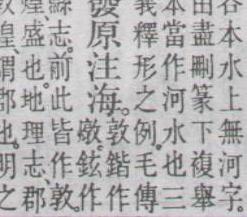 谷本水上無河字。
由盡刪篆下複舉
本當作河水也三
義釋形之例。毛傳
發原注海。
敦鍇作
敬鉉作
縣志。前此皆作敦
煌。盛也。地理志、郡
煌、謂都也。明之